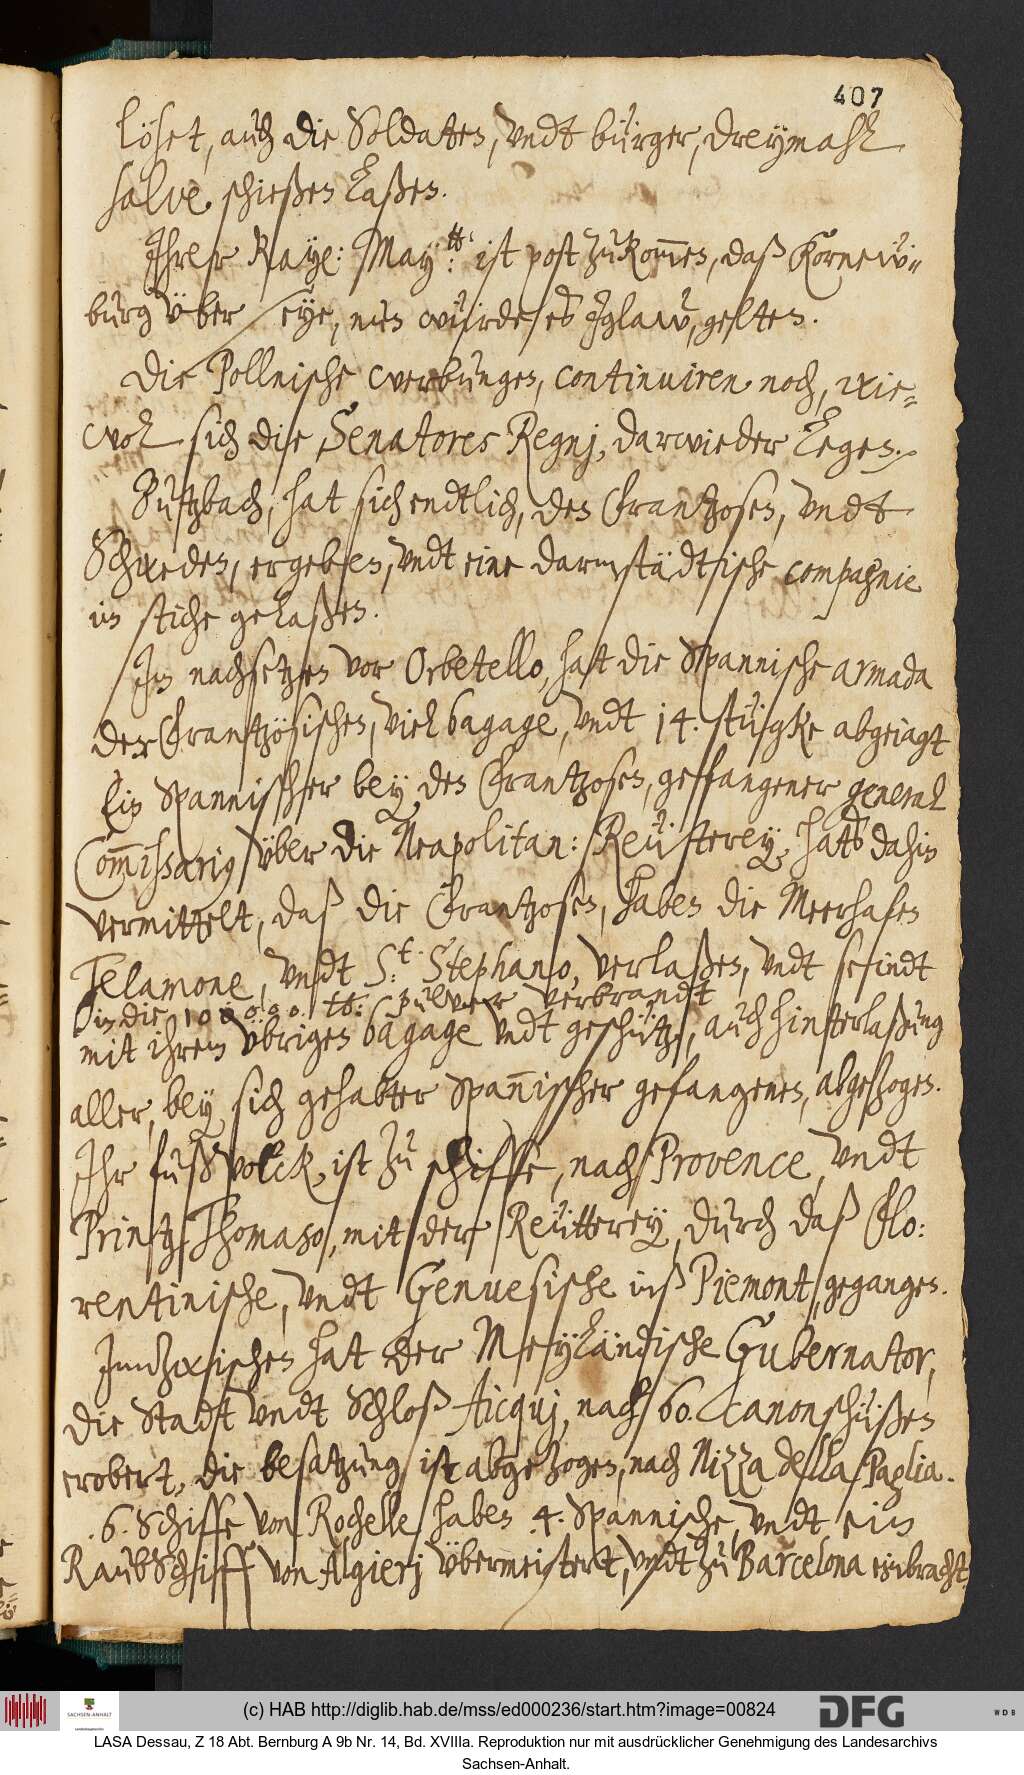 407
löset, auch die Soldaten, undt bürger, dreymahl
salve schießen laßen.
Ihrer Kaye: May:tt: ist post zukom̄en, daß Kornew-
burg über seye, nun würde es Iglaw, gelten.
Die Pollnische werbungen, continuiren noch, wie-
wol sich die Senatores Regnj, darwieder legen.
Butzbach, hat sich endtlich, den Frantzosen, undt
Schweden, ergeben, undt eine darmstädtische compagnie
im stiche gelaßen.
Im nachsetzen vor Orbetello, hat die Spannische armada
der Frantzösischen, viel bagage, undt 14. stügke abgeiagt
Ein Spannischer bey den Frantzosen, gefangener general
Com̄issarius über die Neapolitan: Reüterey, hatts dahin
vermittelt, daß die Frantzosen, haben die Meerhafen
Telamone, undt St: Stephano, verlaßen, undt seindt
in die 10000. tt: pulver verbrandt
mit ihrem übrigen bagage undt geschütz, auch hinterlaßung
aller, bey sich gehabter Span̄ischer gefangenen, abgezogen.
Ihr fußvolck, ist zu schiffe, nach Provence, undt
Printz Thomaso, mit der Reütterey, durch daß Flo:
rentinische, undt Genuesische inß Piemont, gegangen.
Inndzwischen hat der Meyländische Gubernator,
die Stadt undt Schloß Aicquj, nach 60. Canonschüßen
erobert, die besatzung ist abgezogen, nach Nizza della Paglia.
.6. Schiffe von Rochelle haben .4. Spannische, undt ein
RaubSchiff von Algierj übermeistert, undt zu Barcelona einbracht
(c) HAB http://diglib.hab.de/mss/ed000236/start.htm?image=00824
SACHSEN-ANHALT
DFG
WDB
LASA Dessau, Z 18 Abt. Bernburg A 9b Nr. 14, Bd. XVIIIa. Reproduktion nur mit ausdrücklicher Genehmigung des Landesarchivs
Sachsen-Anhalt.